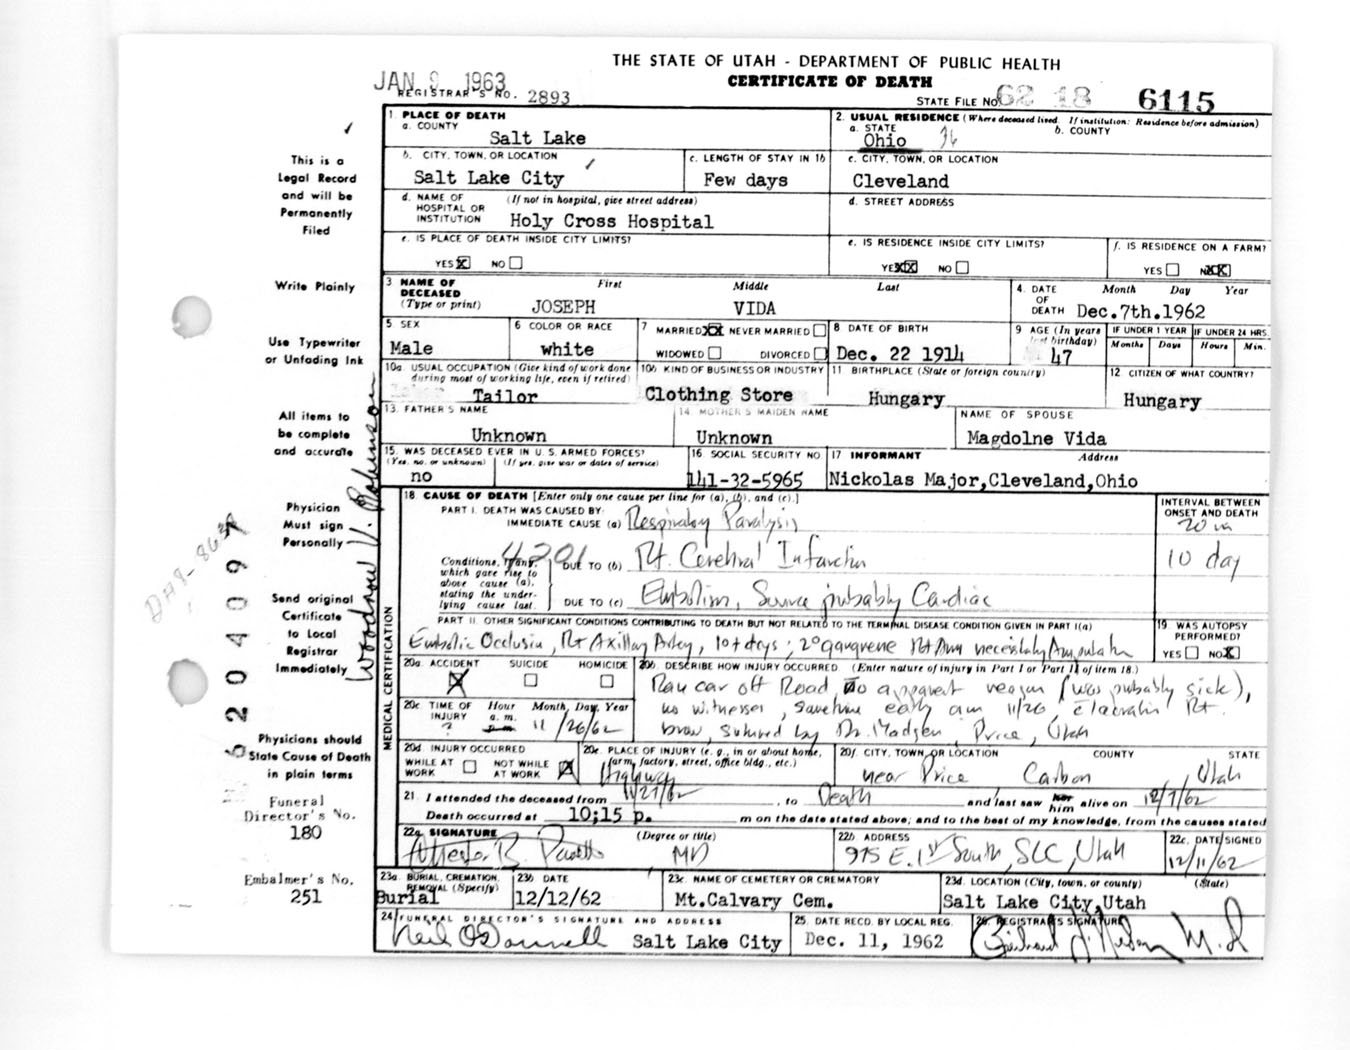 THE STATE OF UTAH - DEPARTMENT OF PUBLIC HEALTH
CERTIFICATE OF DEATH
JAN 9 1963
REGISTRAR'S NO. 2893
STATE FILE NO. 62 18 6115
1. PLACE OF DEATH
a. COUNTY
Salt Lake
2. USUAL RESIDENCE (Where deceased lived. If institution: Residence before admission)
a. STATE b. COUNTY
Ohio 36
b. CITY, TOWN, OR LOCATION
Salt Lake City
c. LENGTH OF STAY IN 1b
Few days
c. CITY, TOWN, OR LOCATION
Cleveland
d. NAME OF HOSPITAL OR INSTITUTION (If not in hospital, give street address)
Holy Cross Hospital
d. STREET ADDRESS
e. IS PLACE OF DEATH INSIDE CITY LIMITS?
YES X NO
e. IS RESIDENCE INSIDE CITY LIMITS?
YES XX NO
f. IS RESIDENCE ON A FARM?
YES NO XX
3 NAME OF DECEASED (Type or print)
First Middle Last
JOSEPH VIDA
4. DATE OF DEATH Month Day Year
Dec.7th.1962
5. SEX
Male
6 COLOR OR RACE
white
7 MARRIED XX NEVER MARRIED
WIDOWED DIVORCED
8 DATE OF BIRTH
Dec. 22 1914
9 AGE (In years last birthday)
47
IF UNDER 1 YEAR IF UNDER 24 HRS.
Months Days Hours Min.
10a USUAL OCCUPATION (Give kind of work done during most of working life, even if retired)
Tailor
10b KIND OF BUSINESS OR INDUSTRY
Clothing Store
11 BIRTHPLACE (State or foreign country)
Hungary
12 CITIZEN OF WHAT COUNTRY?
Hungary
13. FATHER'S NAME
Unknown
14. MOTHER'S MAIDEN NAME
Unknown
NAME OF SPOUSE
Magdolne Vida
15. WAS DECEASED EVER IN U.S. ARMED FORCES?
(Yes, no, or unknown) (If yes, give war or dates of service)
no
16 SOCIAL SECURITY NO.
141-32-5965
17 INFORMANT Address
Nickolas Major,Cleveland,Ohio
18. CAUSE OF DEATH [Enter only one cause per line for (a), (b), and (c).]
PART I. DEATH WAS CAUSED BY:
IMMEDIATE CAUSE (a) Respiratory Paralysis
INTERVAL BETWEEN ONSET AND DEATH
20 m
4201
Conditions, if any, which gave rise to above cause (a), stating the underlying cause last.
DUE TO (b) Rt. Cerebral Infarction
10 day
DUE TO (c) Embolism, Source probably Cardiac
PART II. OTHER SIGNIFICANT CONDITIONS CONTRIBUTING TO DEATH BUT NOT RELATED TO THE TERMINAL DISEASE CONDITION GIVEN IN PART I(a)
Embolic Occlusion, Rt Axillary Artery, 10+ days; 2° gangrene Rt Arm necessitating Amputation
19. WAS AUTOPSY PERFORMED?
YES NO X
20a. ACCIDENT SUICIDE HOMICIDE
X
20b. DESCRIBE HOW INJURY OCCURRED (Enter nature of injury in Part I or Part II of item 18.)
Ran car off Road, no apparent reason (was probably sick),
no witnesses, sometime early am 11/26, Rt.
brow, sutured by Dr. Madsen, Price, Utah
20c TIME OF INJURY Hour a.m. p.m. Month, Day, Year
? 11/26/62
20d. INJURY OCCURRED
WHILE AT WORK NOT WHILE AT WORK X
20e. PLACE OF INJURY (e. g., in or about home, farm, factory, street, office bldg., etc.)
Highway
20f. CITY, TOWN, OR LOCATION COUNTY STATE
near Price Carbon Utah
21. I attended the deceased from 11/27/62, to Death and last saw her him alive on 12/7/62
Death occurred at 10;15 p. m on the date stated above; and to the best of my knowledge, from the causes stated
22a. SIGNATURE (Degree or title)
MD
22b. ADDRESS
975 E. 1st South, SLC, Utah
22c. DATE SIGNED
12/11/62
23a. BURIAL, CREMATION, REMOVAL (Specify)
Burial
23b DATE
12/12/62
23c. NAME OF CEMETERY OR CREMATORY
Mt.Calvary Cem.
23d. LOCATION (City, town, or county) (State)
Salt Lake City,Utah
24. FUNERAL DIRECTOR'S SIGNATURE AND ADDRESS
Neil O'Donnell Salt Lake City
25. DATE RECD. BY LOCAL REG.
Dec. 11, 1962
26. REGISTRAR'S SIGNATURE
M.D
MEDICAL CERTIFICATION
This is a
Legal Record
and will be
Permanently
Filed
Write Plainly
Use Typewriter
or Unfading Ink
All items to
be complete
and accurate
Physician
Must sign
Personally
Send original
Certificate
to Local
Registrar
Immediately
Physicians should
State Cause of Death
in plain terms
Funeral
Director's No.
180
Embalmer's No.
251
Woodrow V. Robinson
5204097